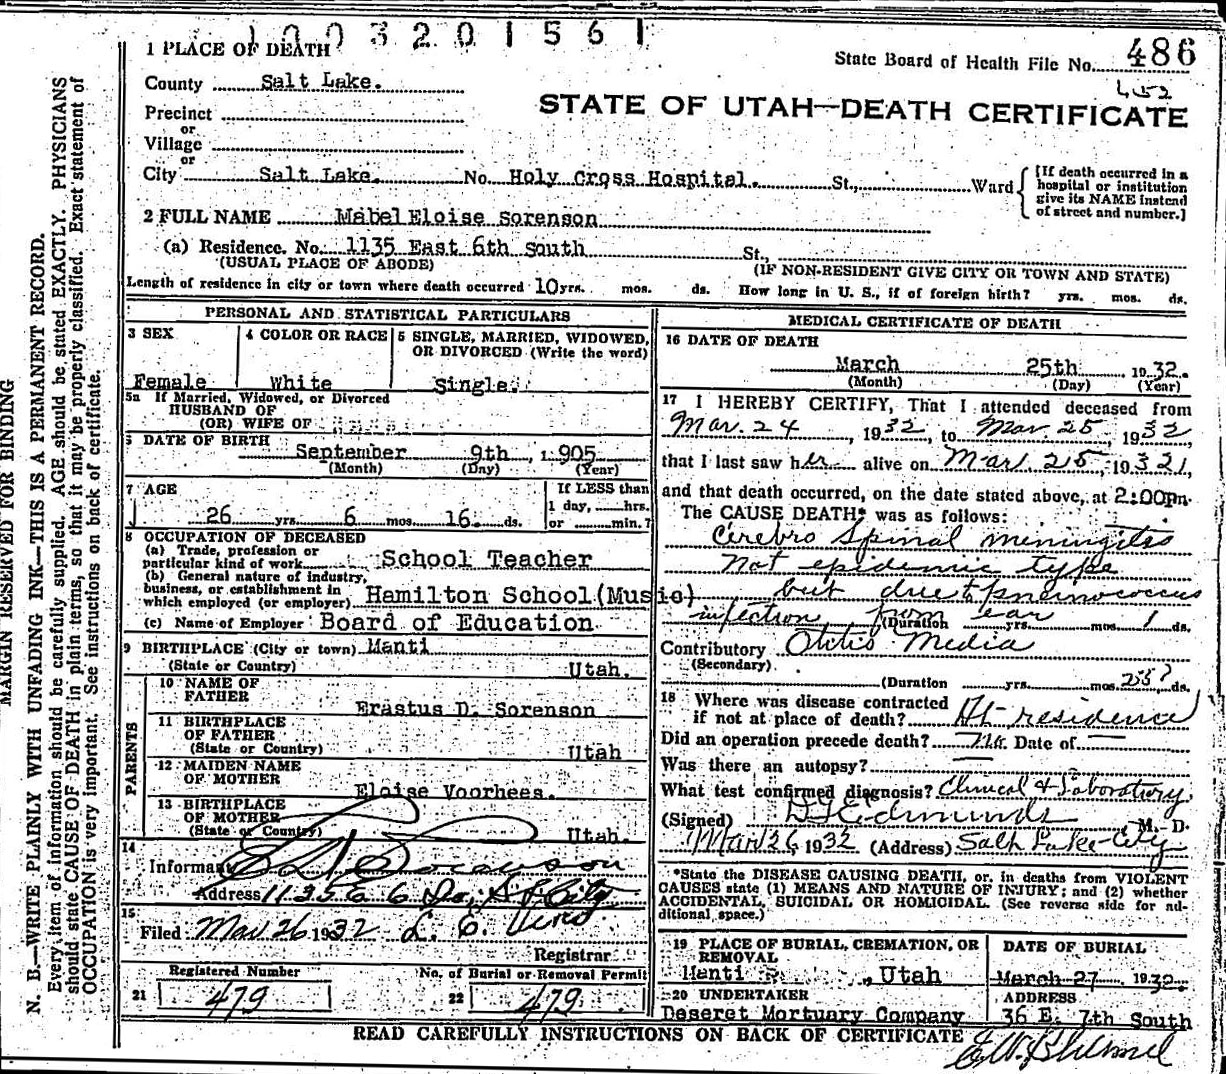 1003201561
1 PLACE OF DEATH
State Board of Health File No. 486
452
County Salt Lake.
STATE OF UTAH—DEATH CERTIFICATE
Precinct
or
Village
or
City Salt Lake. No. Holy Cross Hospital. St., Ward
[If death occurred in a
hospital or institution
give its NAME instead
of street and number.]
2 FULL NAME Mabel Eloise Sorenson
(a) Residence. No. 1135 East 6th South St.,
(USUAL PLACE OF ABODE) (IF NON-RESIDENT GIVE CITY OR TOWN AND STATE)
Length of residence in city or town where death occurred 10 yrs. mos. ds. How long in U. S., if of foreign birth? yrs. mos. ds.
PERSONAL AND STATISTICAL PARTICULARS
3 SEX
Female
4 COLOR OR RACE
White
5 SINGLE, MARRIED, WIDOWED,
OR DIVORCED (Write the word)
Single.
5a If Married, Widowed, or Divorced
HUSBAND OF
(OR) WIFE OF
6 DATE OF BIRTH
September 9th, 1905
(Month) (Day) (Year)
7 AGE
26 yrs. 6 mos. 16. ds.
If LESS than
1 day, hrs.
or min.?
8 OCCUPATION OF DECEASED
(a) Trade, profession or
particular kind of work School Teacher
(b) General nature of industry,
business, or establishment in
which employed (or employer) Hamilton School (Music)
(c) Name of Employer Board of Education
9 BIRTHPLACE (City or town) Manti
(State or Country) Utah.
PARENTS
10 NAME OF
FATHER
Erastus D. Sorenson
11 BIRTHPLACE
OF FATHER
(State or Country) Utah
12 MAIDEN NAME
OF MOTHER
Eloise Voorhees.
13 BIRTHPLACE
OF MOTHER
(State or Country) Utah.
14
Informant E D Sorenson
Address 1135 E 6 So, S L City
15
Filed Mar 26 1932 L. E.
Registrar
Registered Number
21 479
No. of Burial or Removal Permit
22 479
MEDICAL CERTIFICATE OF DEATH
16 DATE OF DEATH
March 25th 1932.
(Month) (Day) (Year)
17 I HEREBY CERTIFY, That I attended deceased from
Mar. 24, 1932, to Mar. 25, 1932,
that I last saw her alive on Mar 25, 1932,
and that death occurred, on the date stated above, at 2:00pm.
The CAUSE DEATH* was as follows:
Cerebro Spinal meningitis
Not epidemic type
but due to pneumococcus
infection from ear
(Duration yrs. mos. 1 ds.
Contributory Otitis Media
(Secondary)
(Duration yrs. mos. ds.
18 Where was disease contracted
if not at place of death? At residence
Did an operation precede death? No. Date of —
Was there an autopsy? —
What test confirmed diagnosis? Clinical & Laboratory
(Signed) Edmunds, M. D.
Mar 26, 1932 (Address) Salt Lake City
*State the DISEASE CAUSING DEATH, or, in deaths from VIOLENT
CAUSES state (1) MEANS AND NATURE OF INJURY; and (2) whether
ACCIDENTAL, SUICIDAL OR HOMICIDAL. (See reverse side for ad-
ditional space.)
19 PLACE OF BURIAL, CREMATION, OR
REMOVAL
Manti, Utah
DATE OF BURIAL
March 27 1932.
20 UNDERTAKER
Deseret Mortuary Company
ADDRESS
36 E. 7th South
READ CAREFULLY INSTRUCTIONS ON BACK OF CERTIFICATE
MARGIN RESERVED FOR BINDING
N. B.—WRITE PLAINLY WITH UNFADING INK—THIS IS A PERMANENT RECORD.
Every item of information should be carefully supplied. AGE should be stated EXACTLY. PHYSICIANS
should state CAUSE OF DEATH in plain terms, so that it may be properly classified. Exact statement of
OCCUPATION is very important. See instructions on back of certificate.